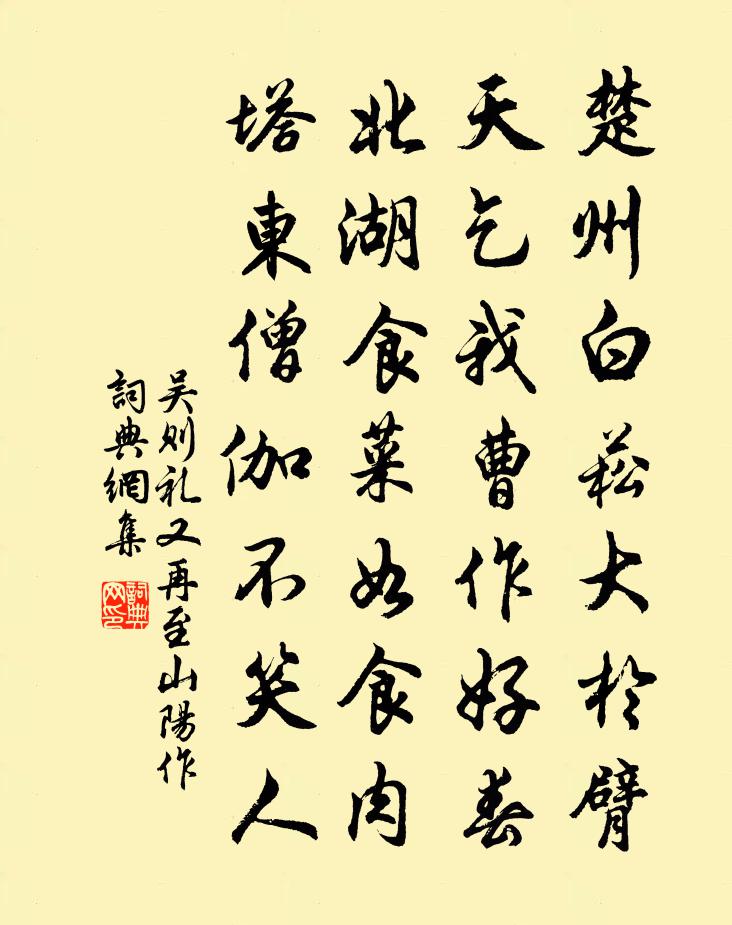 楚州白菘大於臂
天乞我曹作好春
北湖食菜如食肉
塔東僧伽不笑人
吴则礼又再至山陽作
詞典網集
詞典網印